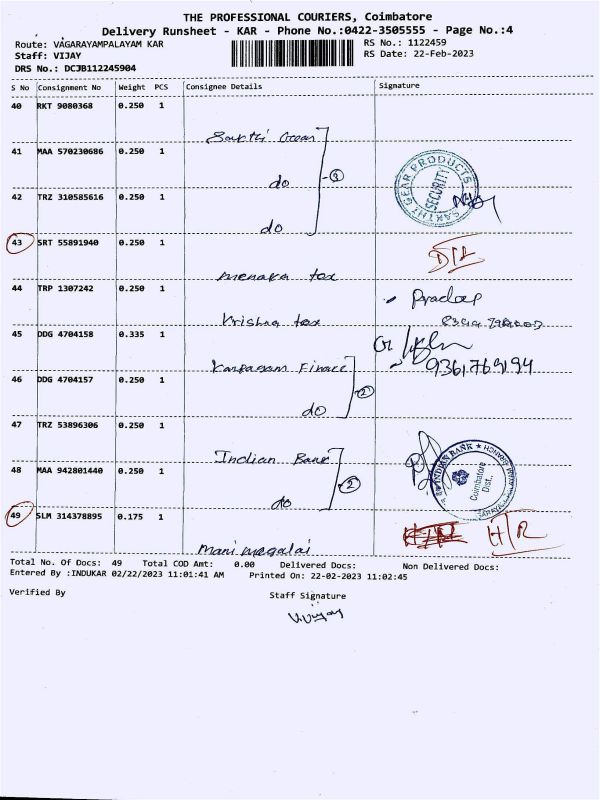 THE PROFESSIONAL COURIERS, Coimbatore
Delivery Runsheet - KAR - Phone No.:0422-3505555 - Page No.:4
Route: VAGARAYAMPALAYAM KAR
RS No.: 1122459
Staff: VIJAY
RS Date: 22-Feb-2023
DRS No.: DCJB112245904
S No Consignment No Weight PCS Consignee Details Signature
40 RKT 9080368 0.250 1
Sakthi Gear
41 MAA 570230686 0.250 1
do
SAKTHI GEAR PRODUCTS
SECURITY
42 TRZ 310585616 0.250 1
do
43 SRT 55891940 0.250 1
D/L
menaka tex
44 TRP 1307242 0.250 1
Pradeep
Krishna tex
45 DDG 4704158 0.335 1
Karpagam Finace
9361769194
46 DDG 4704157 0.250 1
do
2
47 TRZ 53896306 0.250 1
Indian Bank
INDIAN BANK
Coimbatore
Dist.,
48 MAA 942801440 0.250 1
2
do
49 SLM 314378895 0.175 1
H/R
manimegalai
Total No. Of Docs: 49 Total COD Amt: 0.00 Delivered Docs: Non Delivered Docs:
Entered By :INDUKAR 02/22/2023 11:01:41 AM Printed On: 22-02-2023 11:02:45
Verified By
Staff Signature
V.Vijay